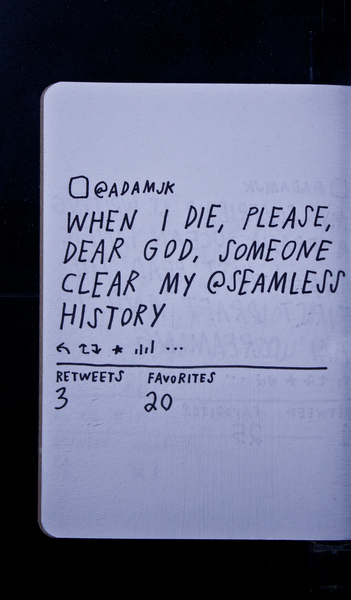 @ADAMJK
WHEN I DIE, PLEASE,
DEAR GOD, SOMEONE
CLEAR MY @SEAMLESS
HISTORY
RETWEETS FAVORITES
3 20